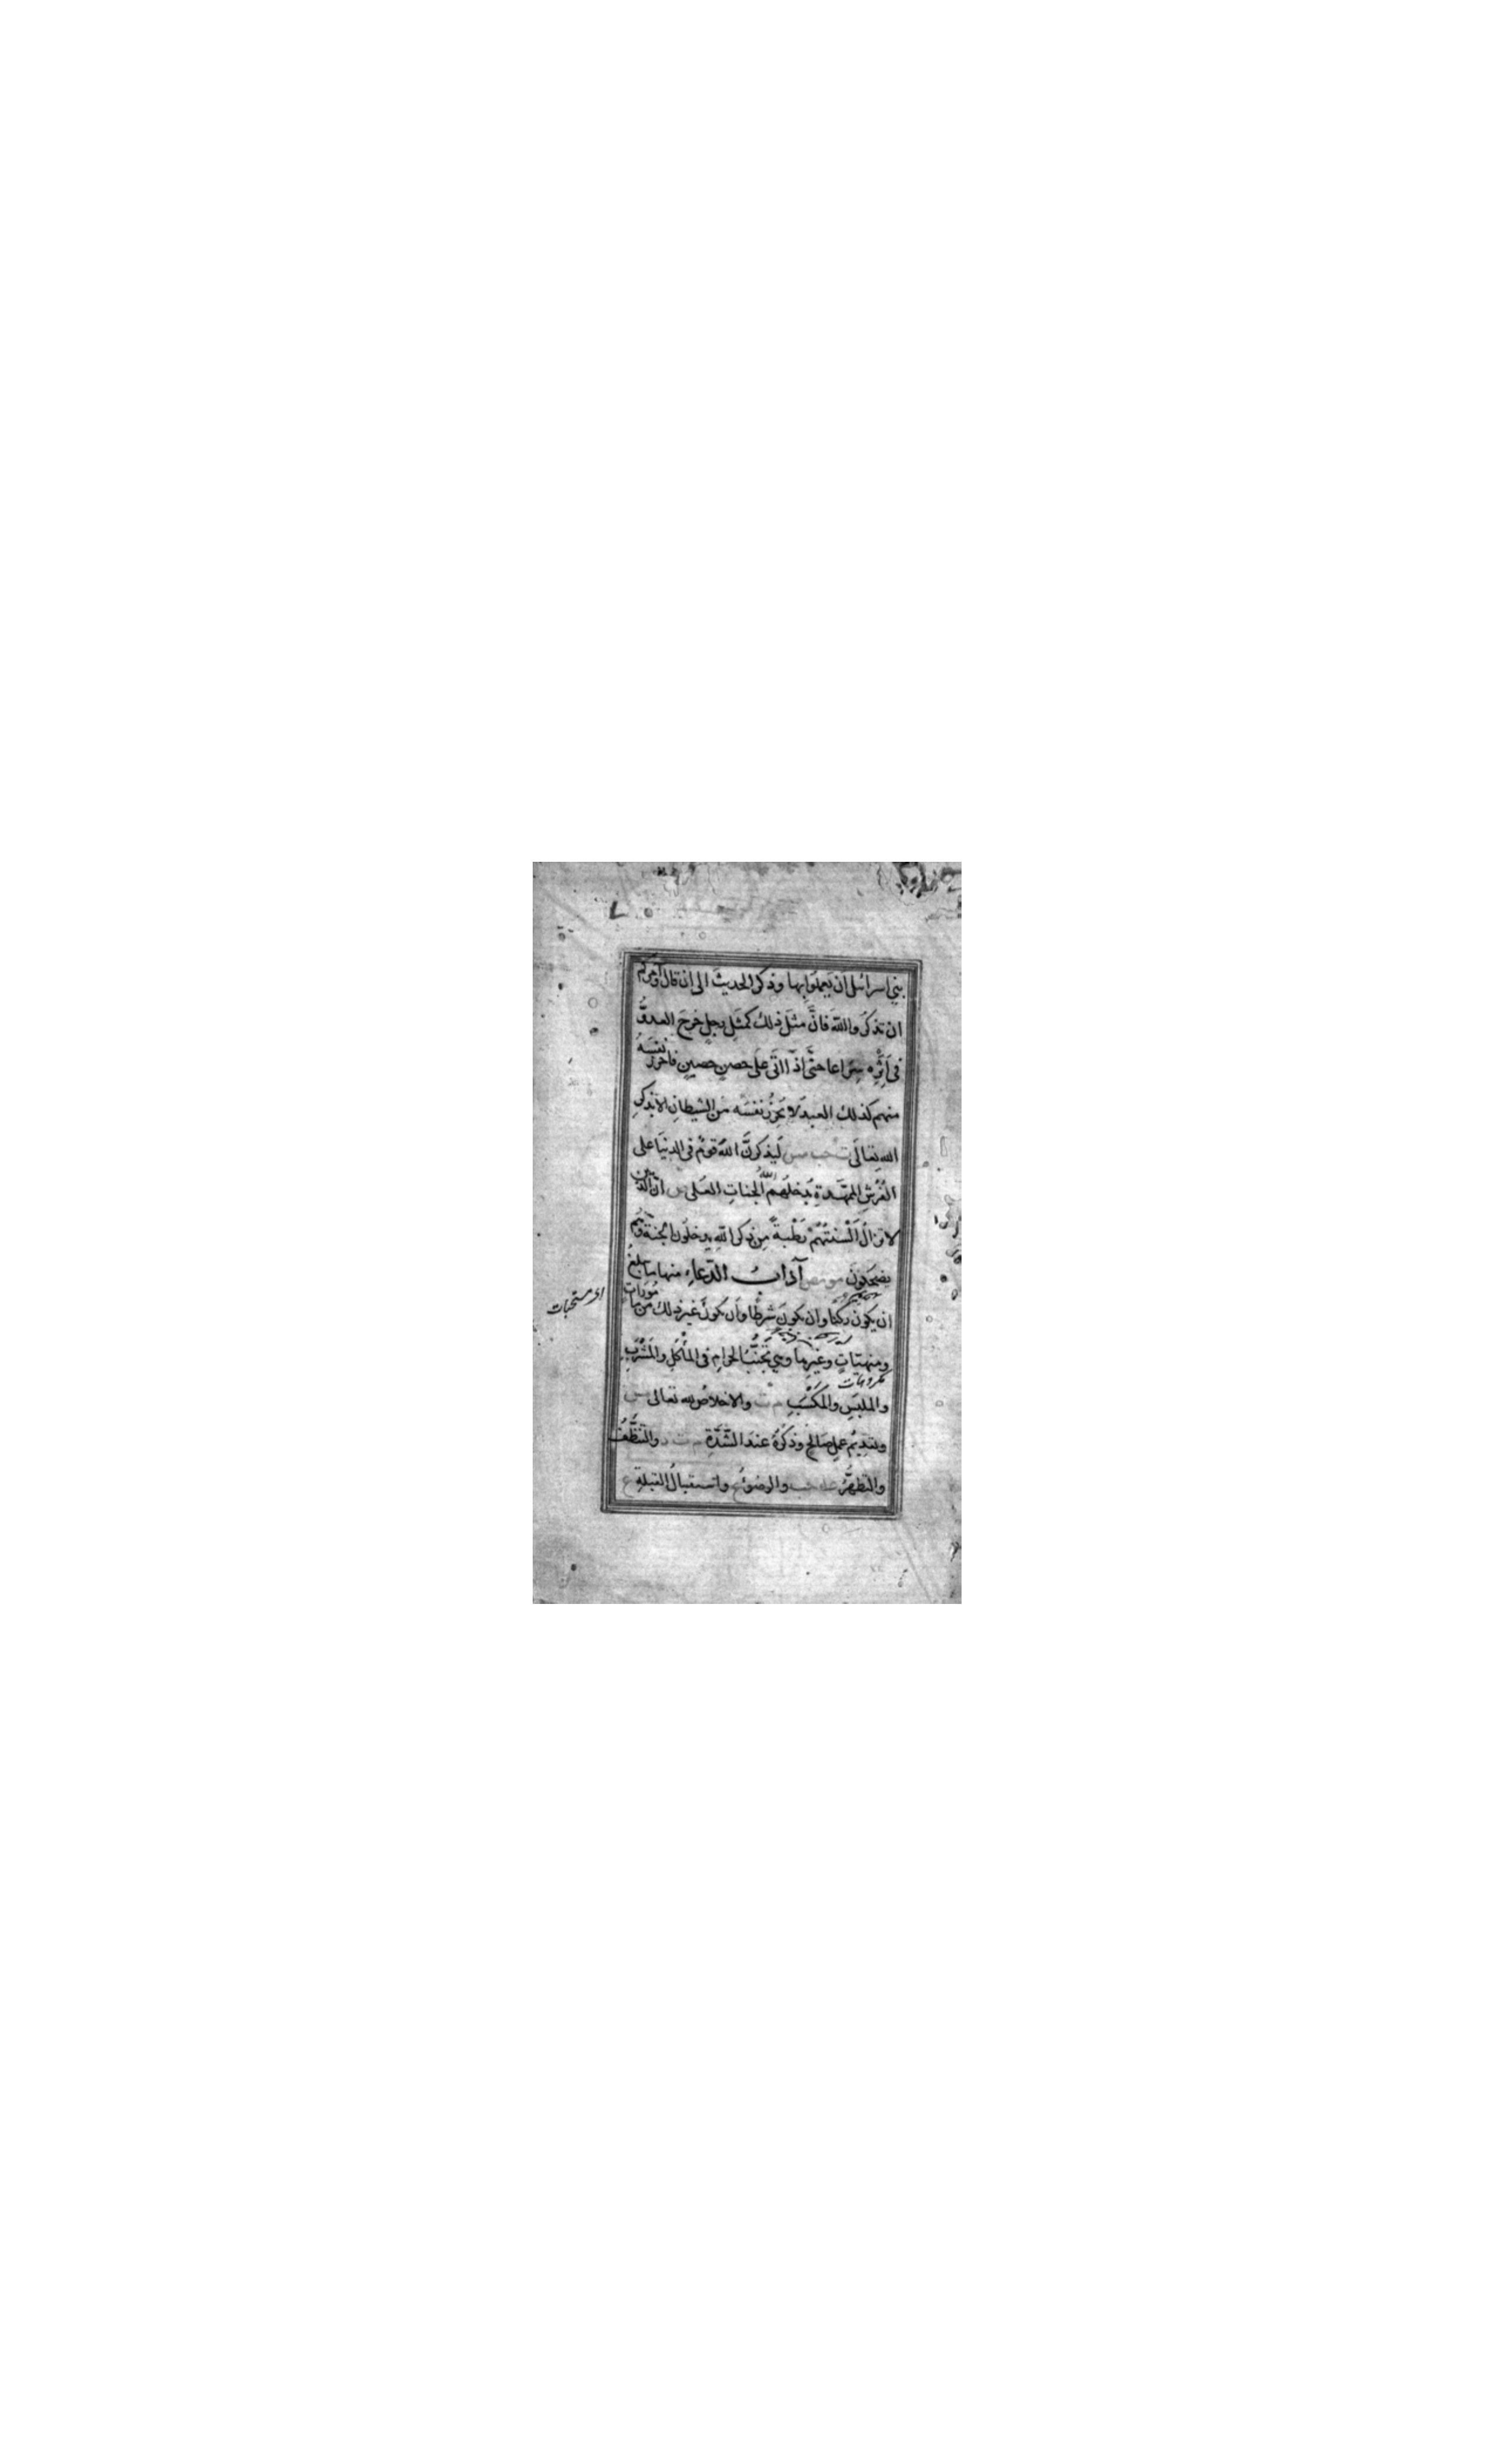 بني اسرائيل اَن يَعملوا بها وذكر الحديثَ الى ان قال وآمركم
ان تذكرَ واللهَ فانَّ مثلَ ذلك كمثَلِ رجلٍ خرجَ العدوُّ
فى اَثَرِه سِرَاعا حتَّى اذا اتَى عَلى حصنٍ حصينٍ فاحرز نفسَهُ
منهم كذلك العبد لا يَحرُزُ نفسَه من الشيطانِ الا بذكرِ
الله تعالَى ت حب مس لَيذكرنَّ اللهَ قومٌ فى الدنيَا على
الفُرُشِ الممهّدةِ يُدخلُهم اللهُ الجناتِ العلى ص انّ الذين
لا تزالُ اَلْسنتُهُمْ رَطْبةً مِن ذِكر اللهِ يدخلُون الجنةَ وهُم
يضحكون مو مص آدابُ الدّعاءِ منها ما يبلغُ
ان يكون ركنا وان يكونَ شرطًا واَن يكونَ غيرَ ذلك من مأموراتٍ
ومنهيّاتٍ وغيرِها وهي تَجنُّبُ الحرامِ فى المأْكلِ والمَشْرَبِ
والملبَسِ والمَكْسَبِ م ت والاخلاصُ لله تعالى مس
وتقديمُ عملٍ صالحٍ وذكرُهُ عندَ الشّدَّةِ م ت د والتنظُّفُ
والتطهُّرُ عه حب والوضوءُ ع واستقبالُ القبلةِ ع
مكروهات
امر مستحبات